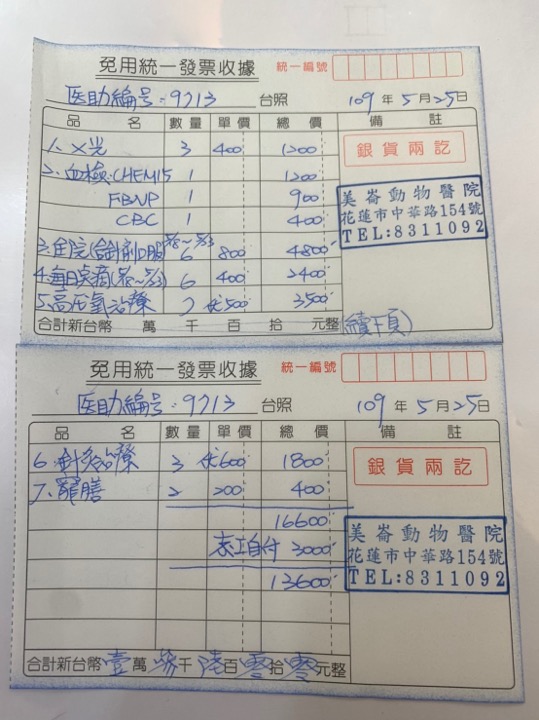 免用統一發票收據 統一編號
医助編号:9713 台照 109年5月25日
品名 數量 單價 總價 備註
1. X光 3 400 1200
銀貨兩訖
2. 血檢:CHEM15 1 1200
FBNP 1 900
CBC 1 400
美崙動物醫院
花蓮市中華路154號
TEL:8311092
3. 住院(含針劑口服 6 800 4800
4. 每日点滴 6 400 2400
5. 高压氧治療 7 500 3500
合計新台幣 萬 千 百 拾 元整 (續下頁)
免用統一發票收據 統一編號
医助編号:9713 台照 109年5月25日
品名 數量 單價 總價 備註
6. 針灸治療 3 600 1800
銀貨兩訖
7. 罐膳 2 200 400
16600
志工自付 3000
13600
美崙動物醫院
花蓮市中華路154號
TEL:8311092
合計新台幣壹萬參千陸百零拾零元整